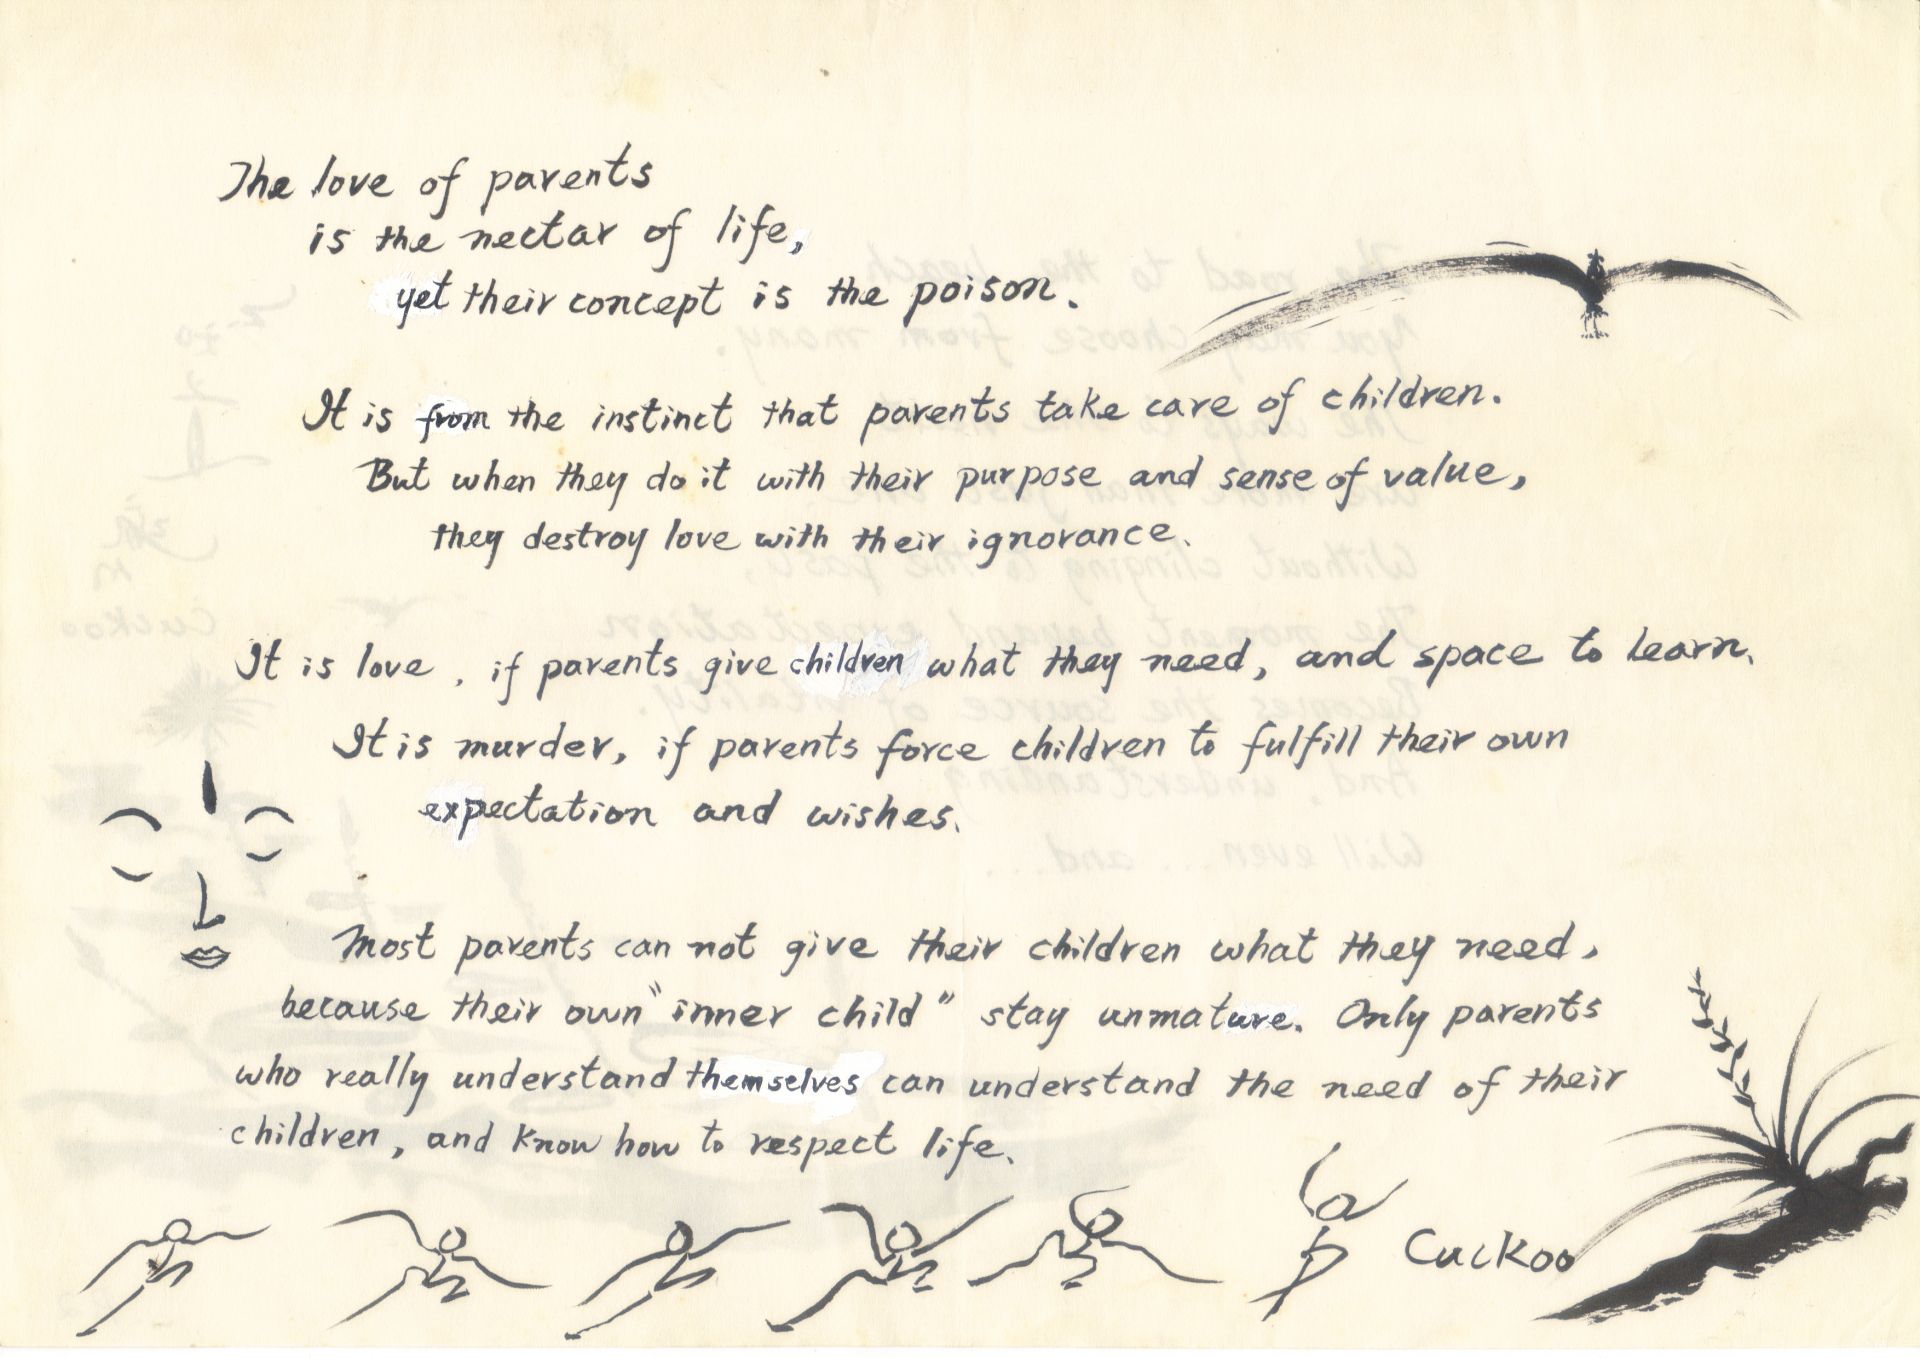 The love of parents
is the nectar of life,
yet their concept is the poison.
It is from the instinct that parents take care of children.
But when they do it with their purpose and sense of value,
they destroy love with their ignorance.
It is love, if parents give children what they need, and space to learn.
It is murder, if parents force children to fulfill their own
expectation and wishes.
Most parents can not give their children what they need,
because their own "inner child" stay unmature. Only parents
who really understand themselves can understand the need of their
children, and know how to respect life.
Cuckoo